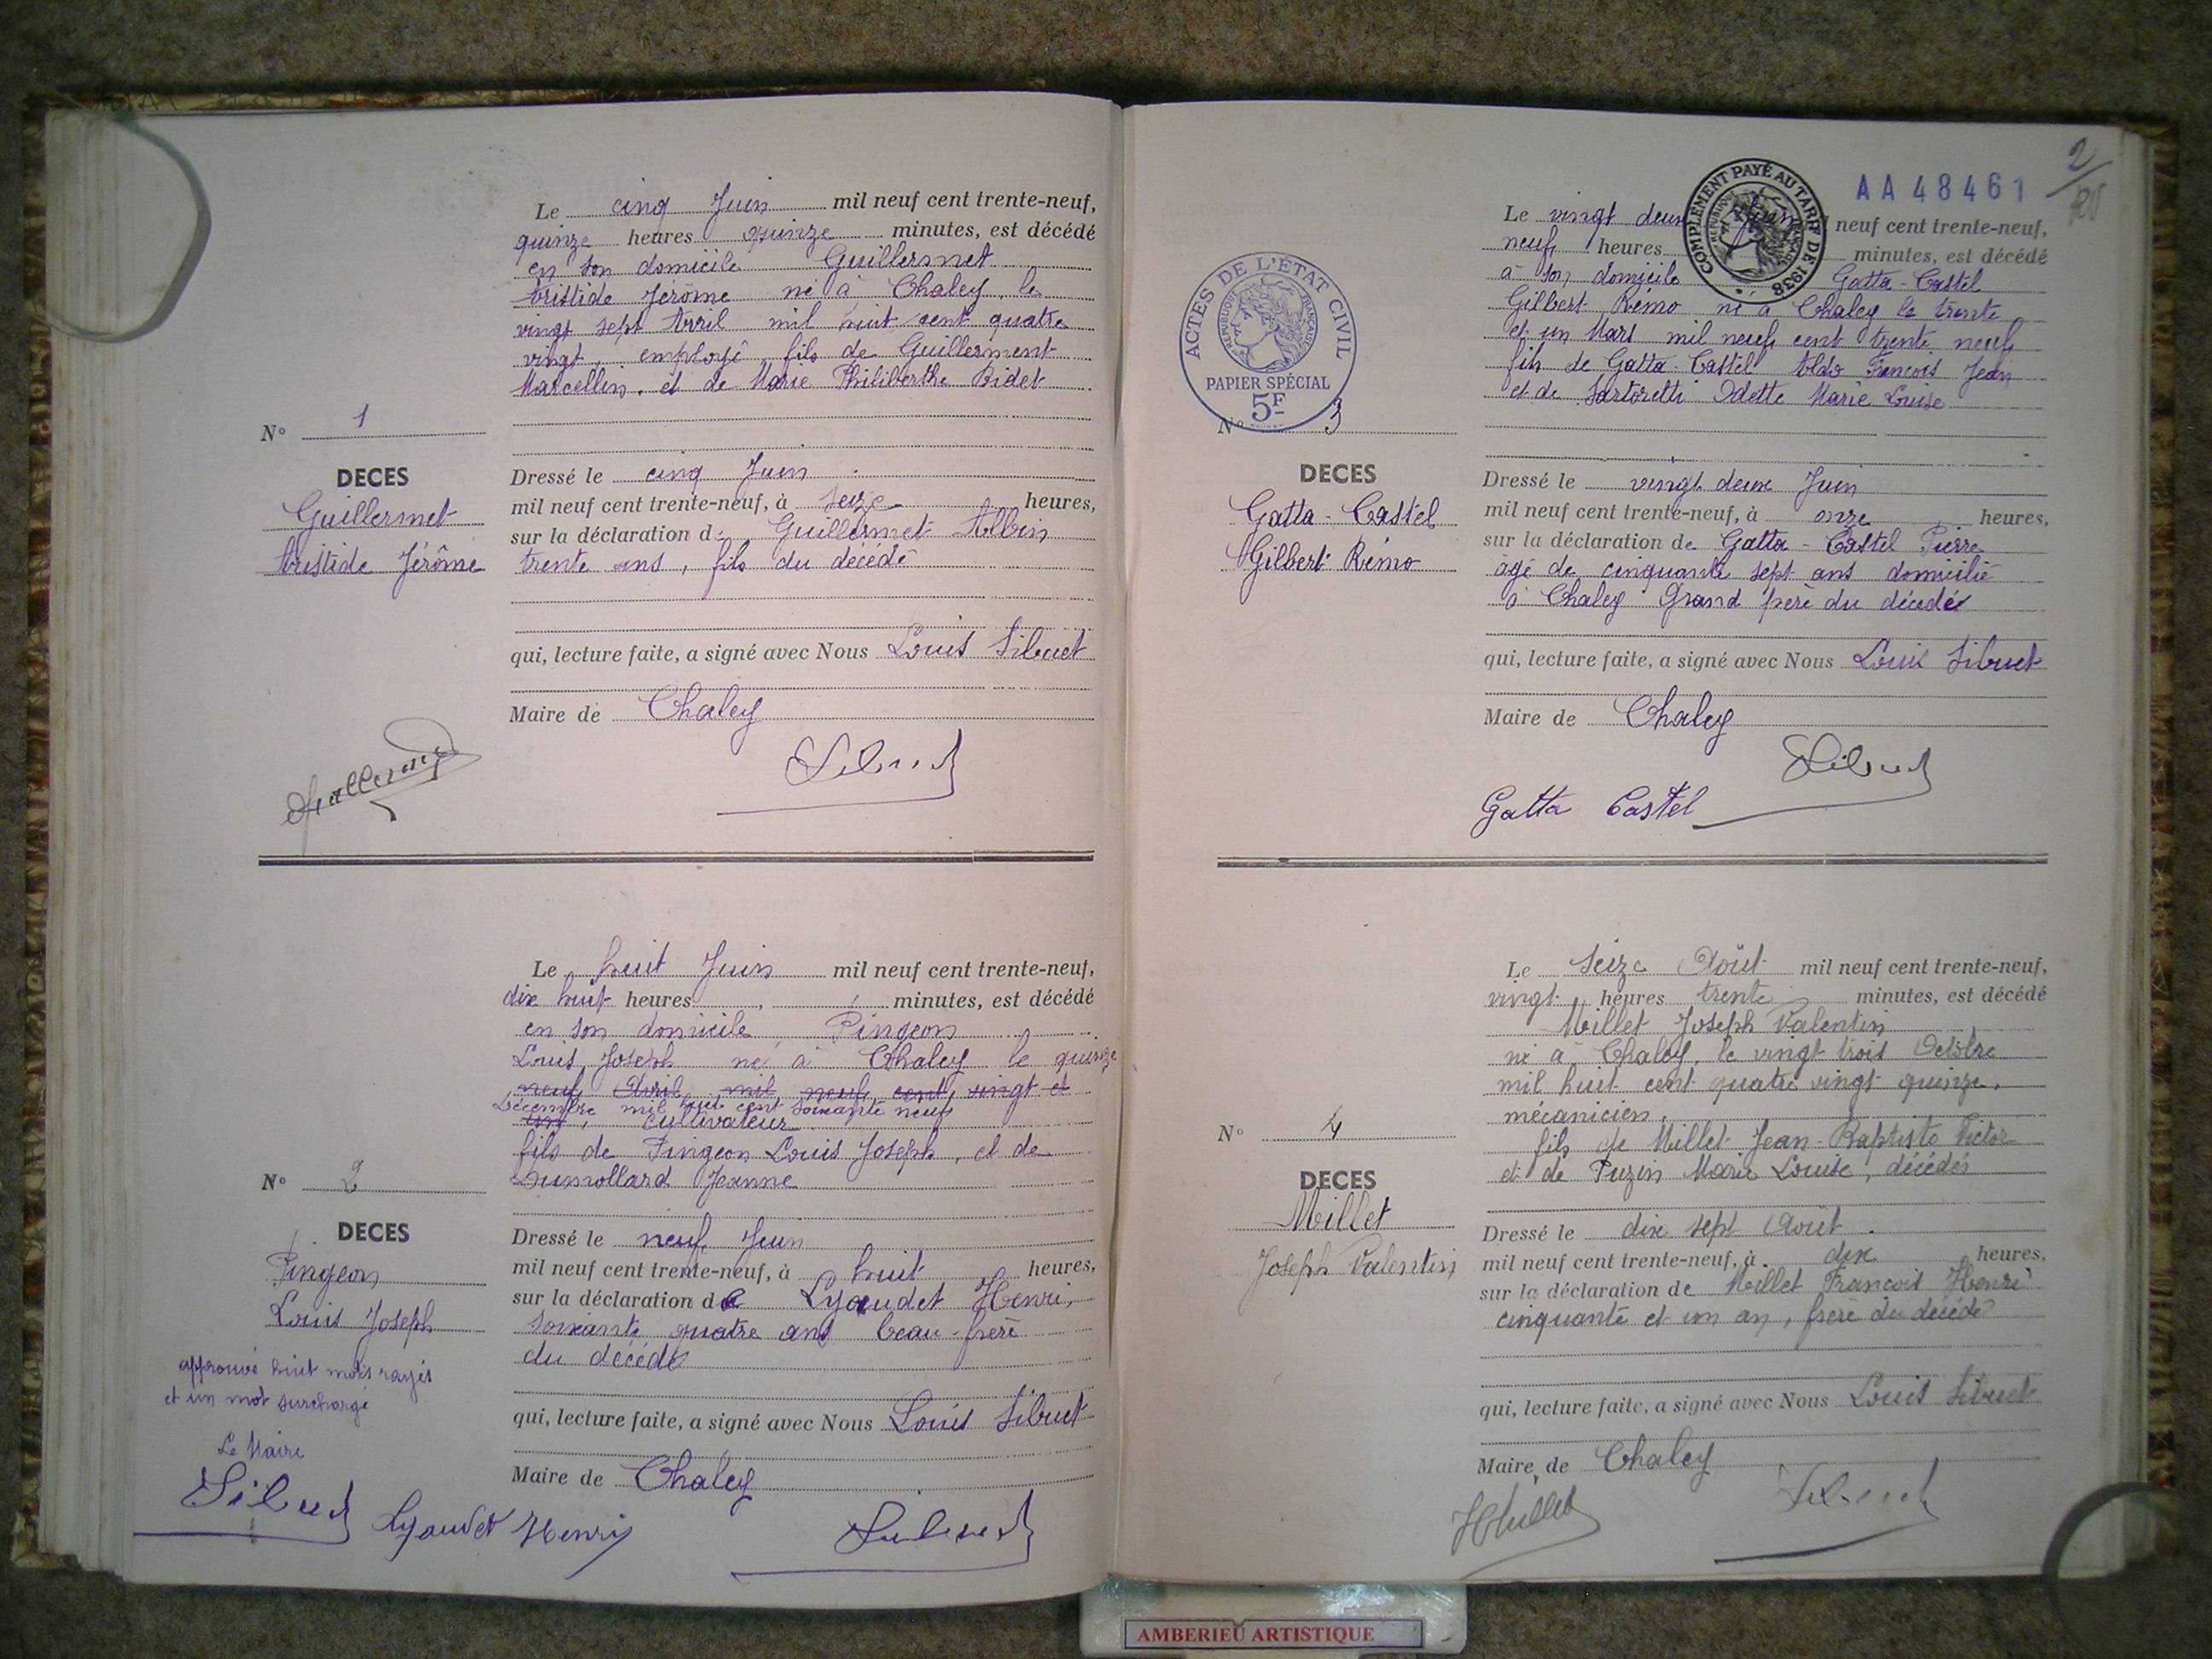 Le cinq Juin mil neuf cent trente-neuf,
quinze heures quinze minutes, est décédé
en son domicile Guillermet
Aristide Jérôme né à Chaley, le
vingt sept Avril mil huit cent quatre
vingt, employé, fils de Guillerment
Marcellin, et de Marie Philiberthe Bidet
N° 1
DECES
Guillermet
Aristide Jérôme
Dressé le cinq Juin
mil neuf cent trente-neuf, à seize heures,
sur la déclaration de Guillermet Albin
trente ans, fils du décédé
qui, lecture faite, a signé avec Nous Louis Sibuet
Maire de Chaley
Guillermet
Sibuet
Le huit Juin mil neuf cent trente-neuf,
dix huit heures minutes, est décédé
en son domicile Pingeon
Louis Joseph né à Chaley le quinze
neuf Avril mil neuf cent vingt et
Décembre mil huit cent soixante neuf
un, cultivateur
fils de Pingeon Louis Joseph, et de
Dumollard Jeanne
N° 2
DECES
Pingeon
Louis Joseph
approuvé huit mots rayés
et un mot surchargé
Le Maire
Sibuet
Dressé le neuf Juin
mil neuf cent trente-neuf, à huit heures,
sur la déclaration de Lyaudet Henri,
soixante quatre ans beau-frère
du décédé
qui, lecture faite, a signé avec Nous Louis Sibuet
Maire de Chaley
Lyaudet Henri
Sibuet
2
AA 48461
COMPLÉMENT PAYÉ AU TARIF DE 1938
RÉPUBLIQUE FRANÇAISE
Le vingt deux Juin neuf cent trente-neuf,
neuf heures minutes, est décédé
à son domicile Gatta-Castel
Gilbert Rémo né à Chaley le trente
et un Mars mil neuf cent trente neuf
fils de Gatta-Castel Aldo François Jean
et de Sartoretti Odette Marie Louise
ACTES DE L'ÉTAT CIVIL
RÉPUBLIQUE FRANÇAISE
PAPIER SPÉCIAL
5F
N° 3
DECES
Gatta-Castel
Gilbert Rémo
Dressé le vingt deux Juin
mil neuf cent trente-neuf, à onze heures,
sur la déclaration de Gatta-Castel Pierre
âgé de cinquante sept ans domicilié
à Chaley Grand père du décédé
qui, lecture faite, a signé avec Nous Louis Sibuet
Maire de Chaley
Sibuet
Gatta Castel
Le Seize Août mil neuf cent trente-neuf,
vingt heures trente minutes, est décédé
Millet Joseph Valentin
né à Chaley, le vingt trois Octobre
mil huit cent quatre vingt quinze,
mécanicien,
fils de Millet Jean-Baptiste Victor
et de Puzin Marie Louise, décédés
N° 4
DECES
Millet
Joseph Valentin
Dressé le dix sept Août
mil neuf cent trente-neuf, à dix heures,
sur la déclaration de Millet François Henri
cinquante et un an, frère du décédé
qui, lecture faite, a signé avec Nous Louis Sibuet
Maire de Chaley
HMillet
Sibuet
AMBERIEU ARTISTIQUE